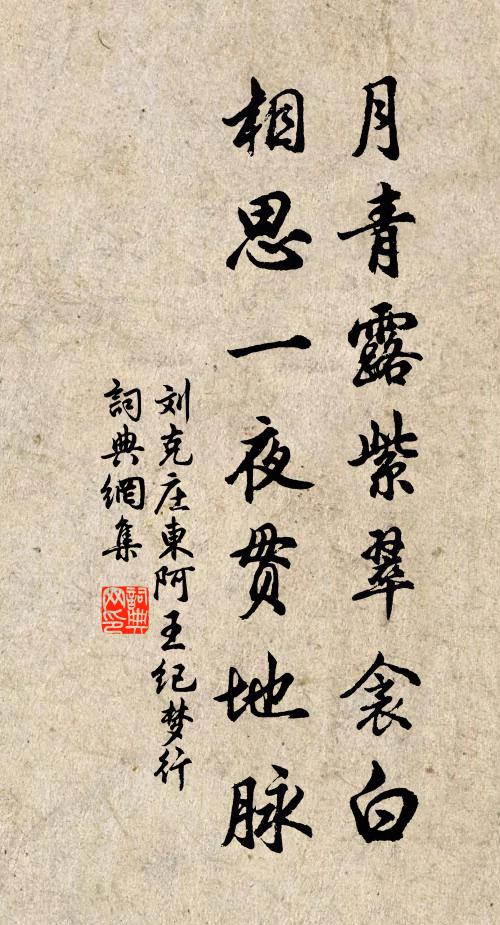 月青露紫翠衾白
相思一夜贯地脉
刘克庄東阿王纪梦行
詞典網集
詞典网印